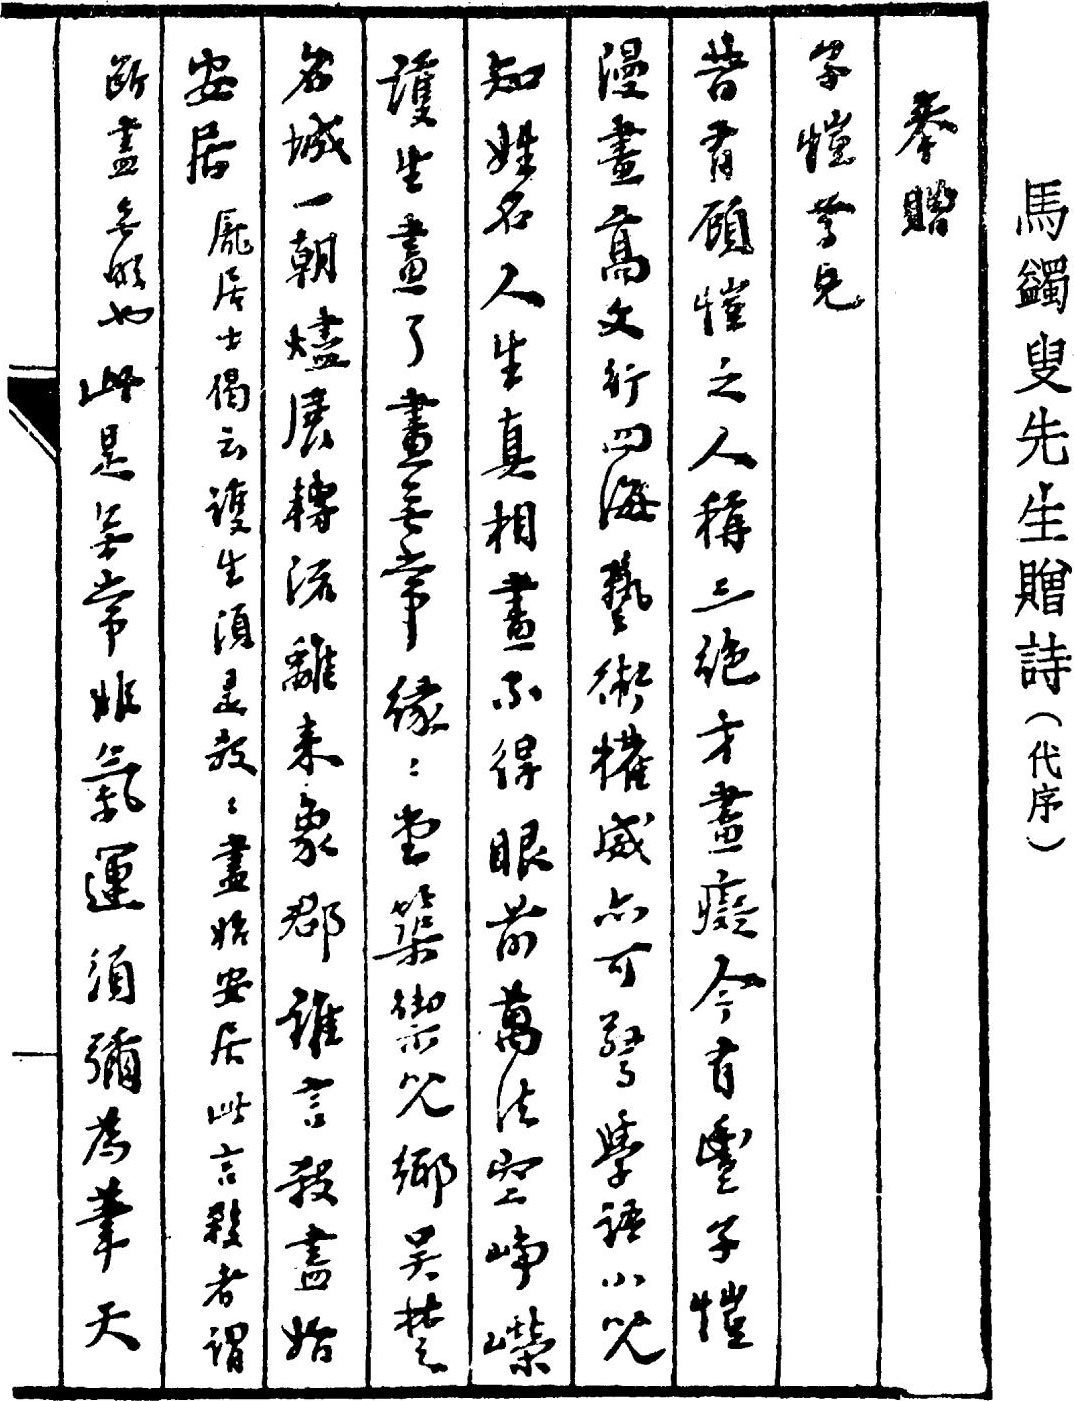 馬蠲叟先生贈詩（代序）
奉贈
子愷尊兄
昔有顧愷之人稱三絕才畫癡今有豐子愷
漫畫高文行四海藝術權威亦可驚學語小兒
知姓名人生真相畫不得眼前萬法空崢嶸
護生畫了畫無常緣緣堂築禦兒鄉吳楚
名城一朝燼展轉流離來象郡誰言殺盡始
安居龐居士偈云護生須是殺殺盡始安居此言殺者謂
斷盡無明也此是無常非氣運須彌為筆天